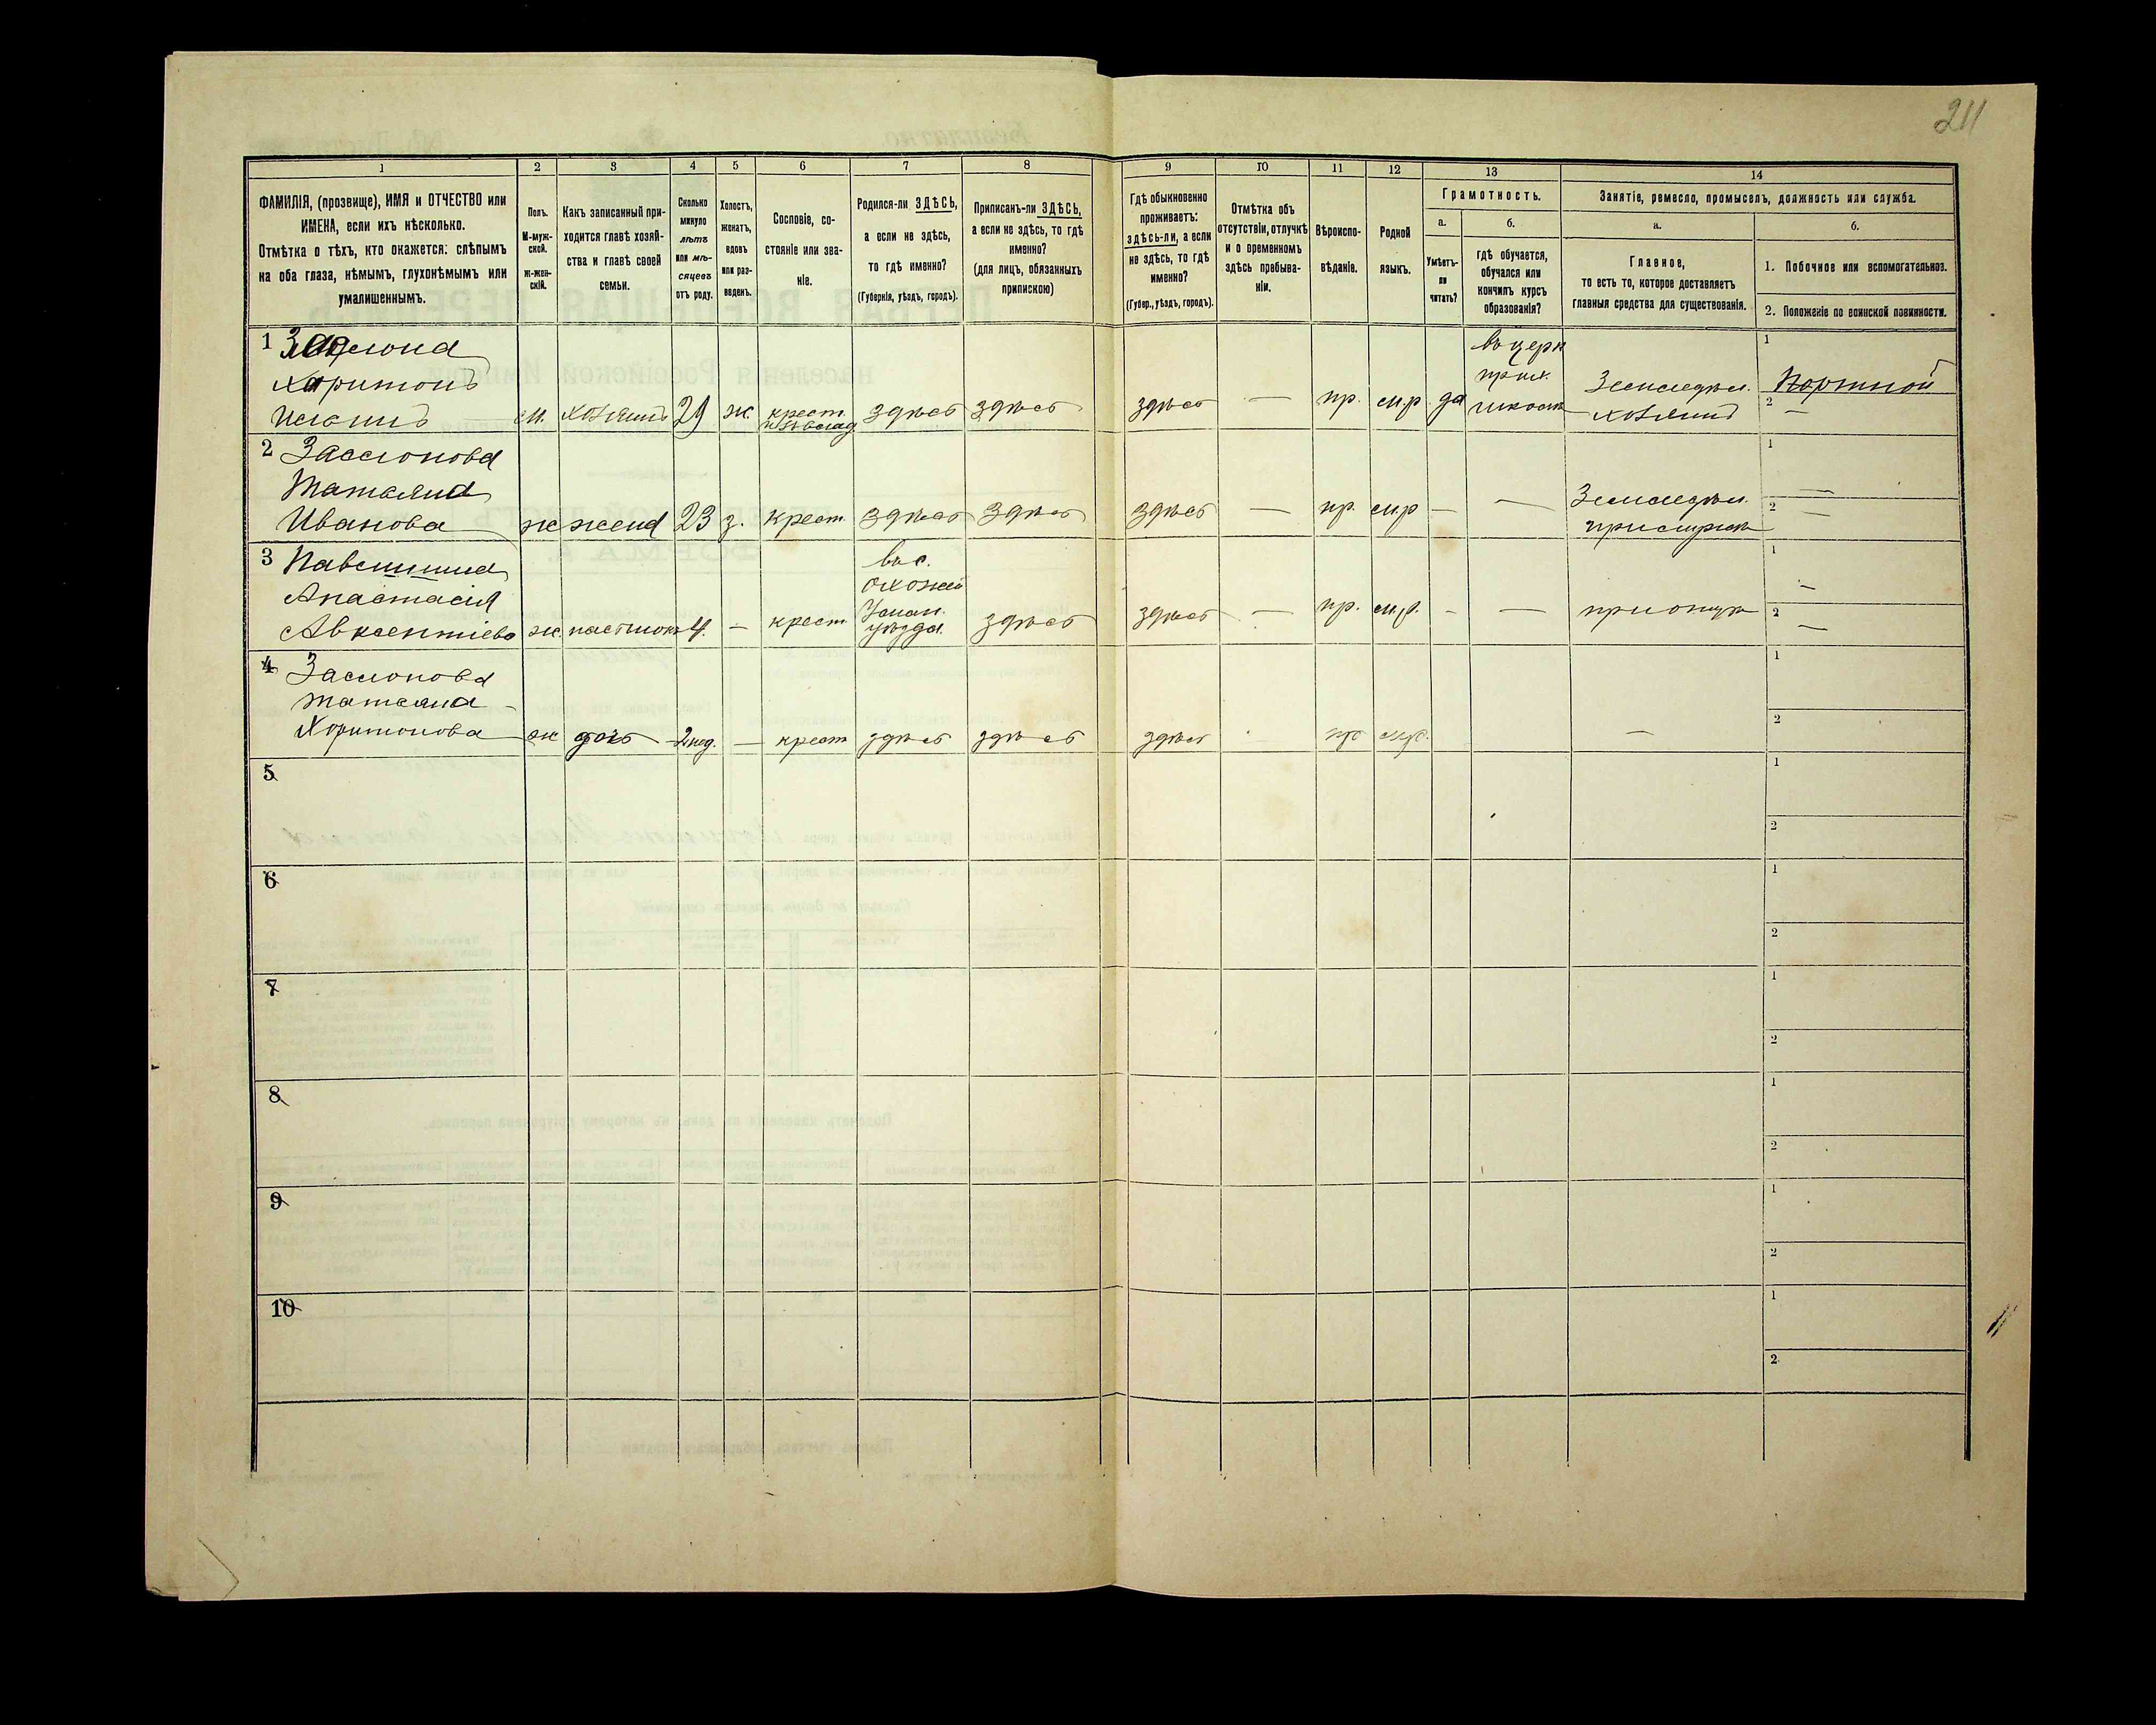 211
1
2
3
4
5
6
7
8
9
10
11
12
13
14
ФАМИЛІЯ, (прозвище), ИМЯ и ОТЧЕСТВО или
ИМЕНА, если ихъ нѣсколько.
Отмѣтка о тѣхъ, кто окажется: слѣпымъ
на оба глаза, нѣмымъ, глухонѣмымъ или
умалишеннымъ.
Полъ.
М-муж-
ской.
Ж-жен-
скій.
Какъ записанный при-
ходится главѣ хозяй-
ства и главѣ своей
семьи.
Сколько
минуло
лѣтъ
или мѣ-
сяцевъ
отъ роду.
Холостъ,
женатъ,
вдовъ
или раз-
веденъ.
Сословіе, со-
стояніе или зва-
ніе.
Родился-ли ЗДѢСЬ,
а если не здѣсь,
то гдѣ именно?
(Губернія, уѣздъ, городъ).
Приписанъ-ли ЗДѢСЬ,
а если не здѣсь, то гдѣ
именно?
(для лицъ, обязанныхъ
припискою)
Гдѣ обыкновенно
проживаетъ:
здѣсь-ли, а если
не здѣсь, то гдѣ
именно?
(Губер., уѣздъ, городъ).
Отмѣтка объ
отсутствіи, отлучкѣ
и о временномъ
здѣсь пребыва-
ніи.
Вѣроиспо-
вѣданіе.
Родной
языкъ.
Грамотность.
а.
Умѣетъ-
ли
читать?
б.
гдѣ обучается,
обучался или
кончилъ курсъ
образованія?
Занятіе, ремесло, промыселъ, должность или служба.
а.
Главное,
то есть то, которое доставляетъ
главныя средства для существованія.
б.
1. Побочное или вспомогательное.
2. Положеніе по воинской повинности.
1 Заслона
Харитонъ
м. хозяинъ 29 ж. крест. здѣсь здѣсь здѣсь — пр. м.р. да
въ церк
прих.
школѣ
Земледѣл.
хозяинъ
1 Портной
2 —
2 Заслонова
Татьяна
Иванова ж жена 23 з. крест. здѣсь здѣсь здѣсь — пр. м.р — —
Земледѣл.
1 —
2 —
3
Анастасія
Авксентіева ж. 4. — крест
въ с.
уѣзда.
здѣсь здѣсь — пр. м.р. - —
1 —
2 —
4 Заслонова
Татьяна
Харитонова ж дочь 2 нед. — крест здѣсь здѣсь здѣсь пр м.р. —
1
2
5
1
2
6
1
2
7
1
2
8
1
2
9
1
2
10
1
2